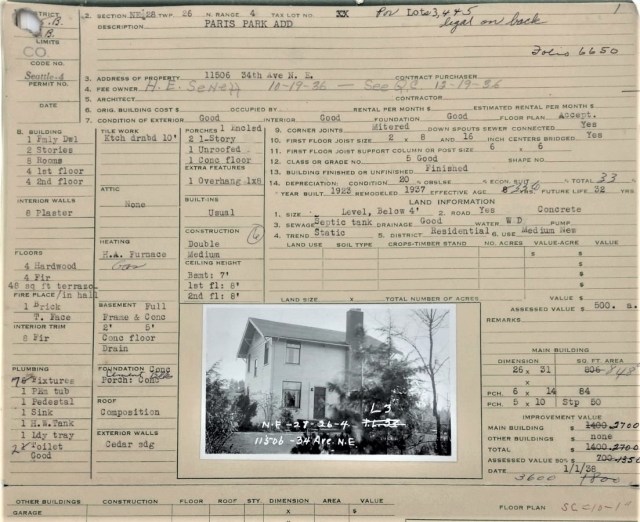 DISTRICT
2. SECTION NE;28 TWP. 26 N. RANGE 4 TAX LOT NO. XX Por Lots 3,4+5
legal on back
1
DESCRIPTION PARIS PARK ADD
LIMITS
CO
Seattle-4
PERMIT NO.
DATE
Folio 6650
3. ADDRESS OF PROPERTY 11506 34th Ave N. E. CONTRACT PURCHASER
4. FEE OWNER 10-19-36 — See Q.C. 12-19-36
5. ARCHITECT CONTRACTOR
6. ORIG. BUILDING COST $ OCCUPIED BY RENTAL PER MONTH $ ESTIMATED RENTAL PER MONTH $
7. CONDITION OF EXTERIOR Good INTERIOR Good FOUNDATION Good FLOOR PLAN Accept.
8. BUILDING
1 Fmly Dwl
2 Stories
8 Rooms
4 1st floor
4 2nd floor
INTERIOR WALLS
8 Plaster
FLOORS
4 Hardwood
4 Fir
48 sq ft terrazo
FIRE PLACE /in hall
1 Brick
T. Face
INTERIOR TRIM
8 Fir
PLUMBING
Fixtures
1 Pem tub
1 Pedestal
1 Sink
1 H.W.Tank
1 Ldy tray
Toilet
Good
TILE WORK
Ktch drnbd 10'
ATTIC
None
HEATING
H.A. Furnace
Gas
BASEMENT Full
Frame & Conc
2' 5'
Conc floor
Drain
FOUNDATION Conc
Porch: Conc
ROOF
Composition
EXTERIOR WALLS
Cedar sdg
PORCHES 1 Encled
2 1-Story
1 Unroofed
1 Conc floor
EXTRA FEATURES
1 Overhang 1x8
BUILT-INS
Usual
CONSTRUCTION 6
Double
Medium
CEILING HEIGHT
Bsmt: 7'
1st fl: 8'
2nd fl: 8'
9. CORNER JOINTS Mitered DOWN SPOUTS SEWER CONNECTED Yes
10. FIRST FLOOR JOIST SIZE 2 x 8 and 16 INCH CENTERS BRIDGED Yes
11. FIRST FLOOR JOIST SUPPORT COLUMN OR POST SIZE 6 x 6
12. CLASS OR GRADE NO. 5 Good SHAPE NO.
13. BUILDING FINISHED OR UNFINISHED Finished
14. DEPRECIATION: CONDITION 20 % OBSLSE ECON. SUIT TOTAL 33 %
YEAR BUILT 1923 REMODELED 1937 EFFECTIVE AGE FUTURE LIFE 32 YRS.
LAND INFORMATION
1. SIZE Level, Below 4' 2. ROAD Yes Concrete
3. SEWAGE Septic tank DRAINAGE Good WATER W.D. PUMP
4. TREND Static 5. DISTRICT Residential 6. USE Medium Res
LAND USE SOIL TYPE CROPS-TIMBER STAND NO. ACRES VALUE-ACRE VALUE
x $ $
LAND SIZE x TOTAL NUMBER OF ACRES VALUE $
ASSESSED VALUE $ 500. a.
REMARKS
MAIN BUILDING
DIMENSION SQ. FT. AREA
26 x 31 806 848
PCH. 6 x 14 84
PCH. 5 x 10 Stp 50
IMPROVEMENT VALUE
MAIN BUILDING $ 1400 2700
OTHER BUILDINGS $ none
TOTAL $ 1400 2700
ASSESSED VALUE 50% $ 700 1350
DATE 1/1/38
3600 1800
L3
N.E-27-26-4
11506-34 Ave N.E.
OTHER BUILDINGS CONSTRUCTION FLOOR ROOF STY. DIMENSION AREA VALUE
GARAGE x $
FLOOR PLAN